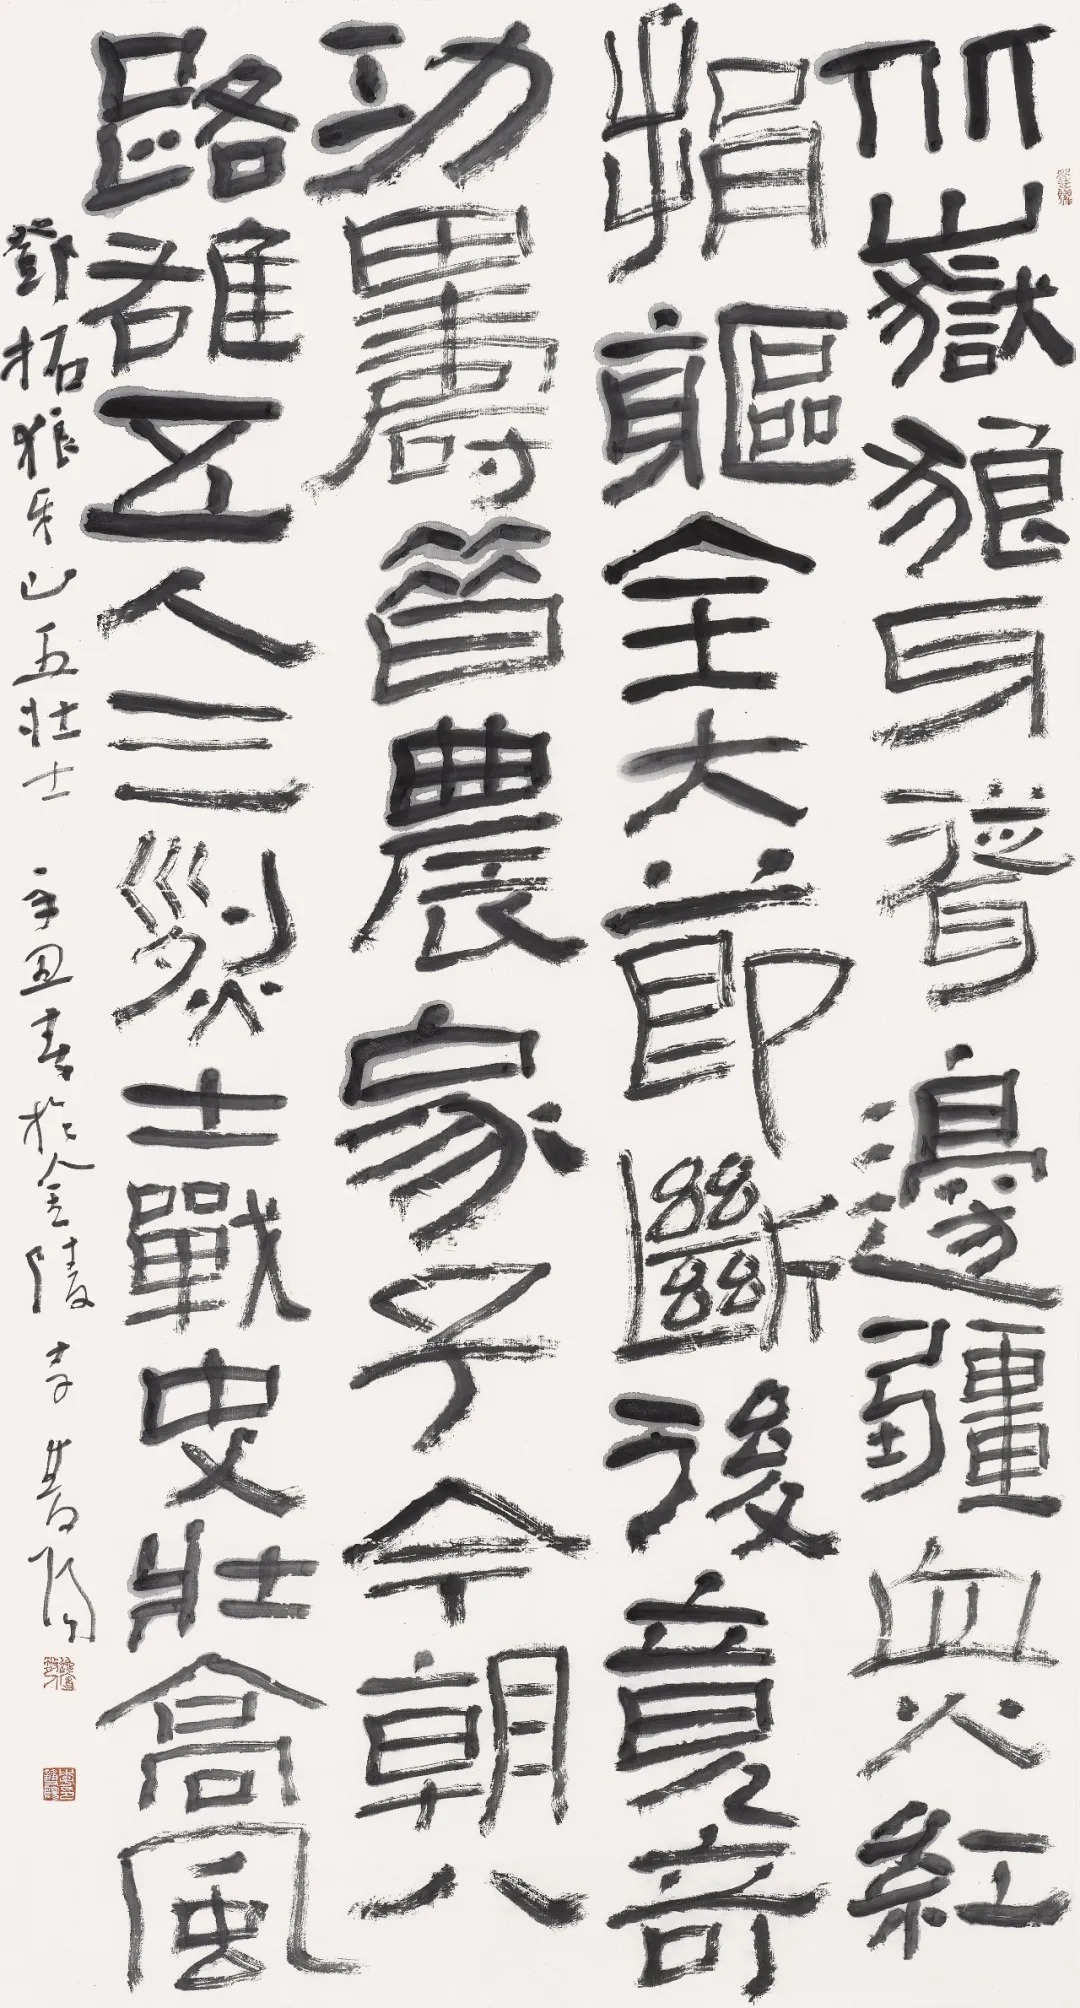 北嶽狼牙聳邊疆血火紅
捐軀全大節斷後竟奇
功疇昔農家子今朝八
路雄五人三烈士戰史壯高風
鄧拓狼牙山五壯士 辛丑春於金陵李雙陽